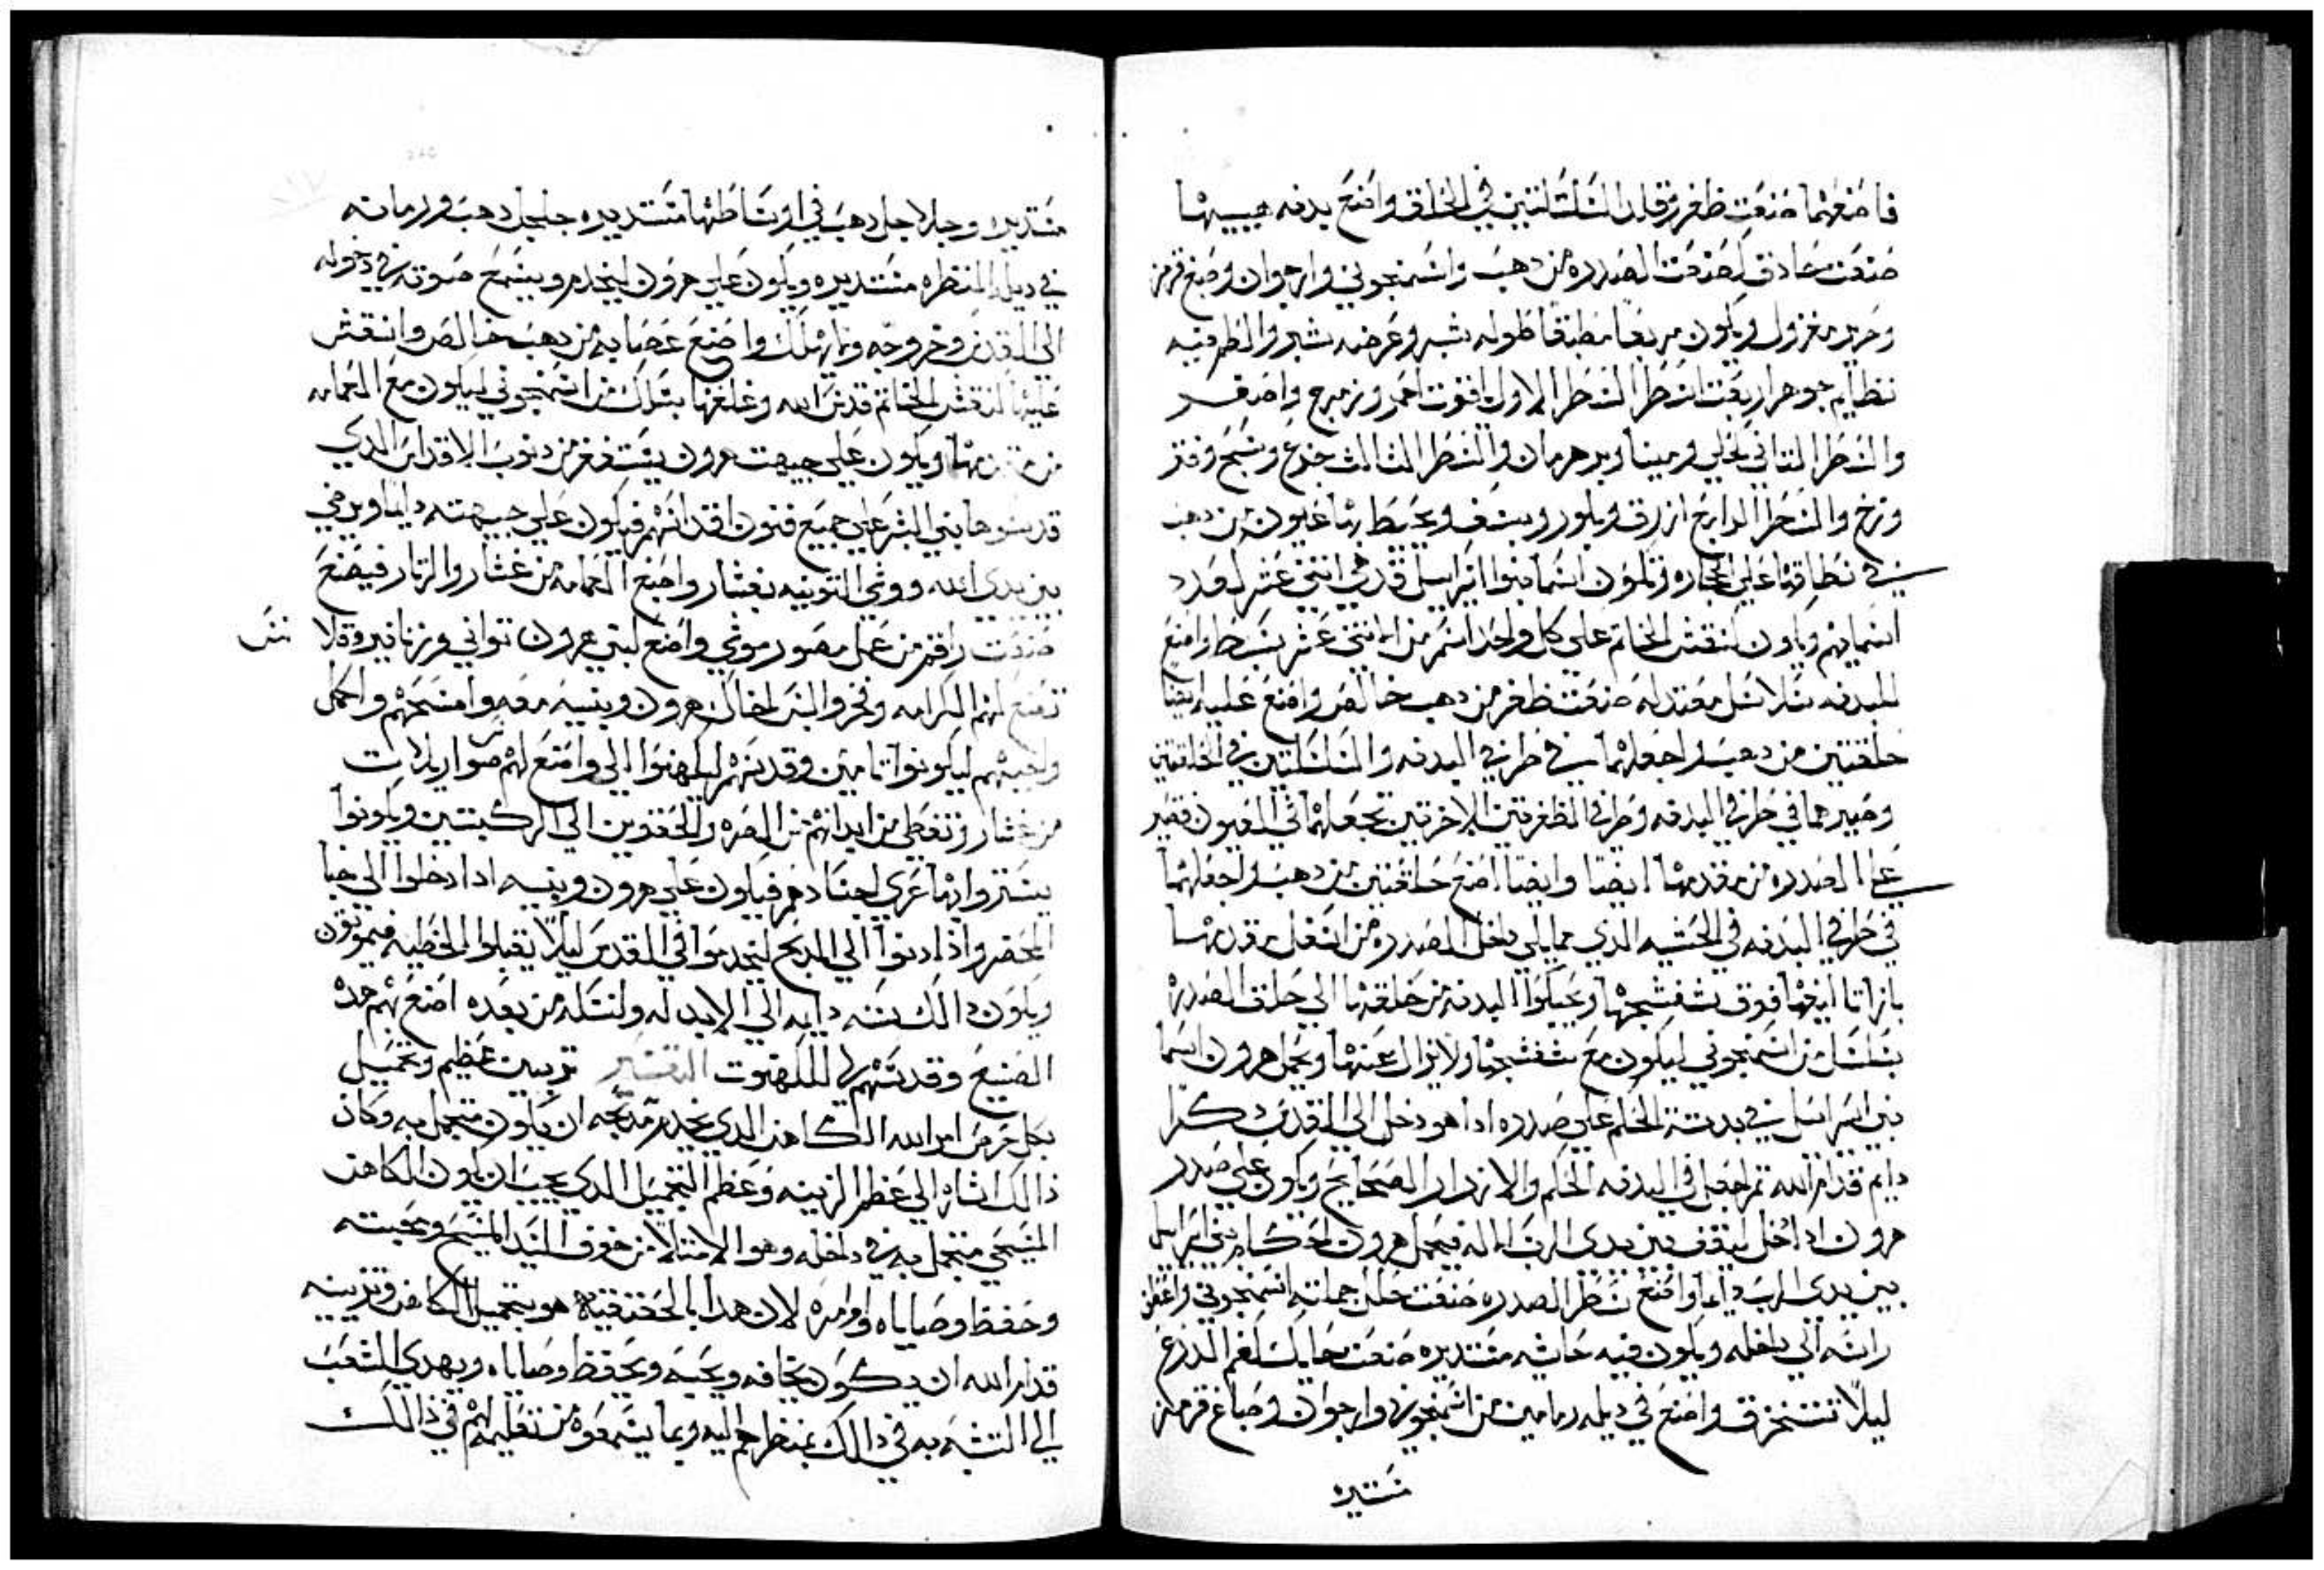 فاصنعهما صنعت ظفر وقلد السلسلتين في الحلق واصنع بدنه
صنعت حادق كصنعت الصدره من دهب واسمنجوني وارجوان وصبغ قرمز
وحرير مغزول ويكون مربعا مطبقا طوله شبر وعرضه شبر وانظم فيه
نظايم جوهر اربعت اسطر السطر الاول ياقوت احمر وزمرج واصفر
والسطر التاني كحلي ومينا وبرهرمان والسطر التالت جزع وسبج وفتر
والسطر الرابع ازرق وبلور ويشف ويحيط بها عيون من دهب
في نطاقها على الحجاره وتكون اسما بنوا اسراييل قدر في اتني عشر لعدد
اسمايهم ويكون كنقش الخاتم على كل واحد اسم من الاتني عشر سبط واصنع
للبدنه سلاسل معتدله صنعت ظفر من دهب خالص واصنع عليه ايضا
حلقتين من دهب واجعلهما في طرفي البدنه والسلسلتين في الحلقتين
وصيرهما في طرفي البدنه وطرفي الظفرتين الاخرتين تجعلهما في العيون فتصير
على الصدره من مقدمها ايضا وايضا اصنع حلقتين من دهب واجعلهما
في طرفي البدنه في الحشيه الدي مما يلي داخل الصدره من اسفل مقدمها
بازاتا ليغها فوق شفشجها ويحبكوا البدنه من حلقتها الي حلق الصدره
بسلسل من اسمنجوني ليكون مع شفشجها ولا يزال عنها ويحمل هرون اسما
بني اسراييل في بدنة الحكم على صدره ادا هو دخل الي القدس دكرا
دايم قدام الله تم اجعل في البدنه الحكم والازدار الصحايح ويكون على صدر
هرون ادا دخل ليقف بين يدي الرب الاله فيحمل هرون احكام بني اسراييل
بين يدي الرب دايما واصنع سطر الصدره صنعت حلل جملته اسمنجوني واعطف
راسه الي داخله ويكون فيه حاشه مستديره صنعت حايك كفم الدرع
ليلا تنخرق واصنع في ديله رمامين من اسمنجوني وارجوان وصباغ قرمز
مستديره
مستديره وجلاجل دهب في اوساطها مستديره جلجل دهب ورمانه
في ديل المنطره مستديره ويكون على هرون ليخدم ويسمع صوته في دخوله
الي القدس وخروجه ولا يهلك واصنع عصابه من دهب خالص وانقش
عليها كنقش الخاتم قدس الله وعلقها بسلك من اسمنجوني ليكون مع العمامه
من مقدمها ويكون على جبهت هرون يستغفر من دنوب الاقداس الدي
قدسوها بني البشر على جميع فنون اقداسهم فيكون على جبهته دايما ويرضي
بين يدي الله ووشي التونيه بغشار واصنع العمامه من غشار والزنار فيصنع
صنعت راقم من عمل مصور موشي واصنع لبني هرون تواني وزنانير وقلانس
تصنع لهم الكرامه وفخر والبس اخاك هرون وبنيه معه وامسحهم واكمل
واجبهم ليكونوا تامين وقدسهم ليكهنوا الي واصنع لهم سراويلات
من غشار وتغطي من ابدانهم من السره والحقوين الي الركبتين ويكونوا
يستروا بها عري اجسادهم فيكون على هرون وبنيه ادا دخلوا الي خبا
المحضر واذا دنوا الي المدبح ليخدموا في القدس ليلا يقبلوا الخطيه فيموتون
ويكون دالك سنه دايمه الي الابد له ولنسله من بعده اصنع بهم هده
الصنيع وقدسهم لي للكهنوت التفسير تزيين عظيم وتجميل
بكل حرص امر الله الكاهن الدي يخدم مدبحه ان يكون متجمل به وكان
ذالك اشاره الي عظم الزينه وعظم التجميل الدي يجب ان يكون الكاهن
المسيحي متجمل به في داخله وهو الامتلا من خوف السيد المسيح ومحبته
وحفظ وصاياه واوامره لان هدا بالحقيقيه هو تجميل الكاهن وتزيينه
قدام الله ان يكون يخافه ويحبه ويحفظ وصاياه ويهدي الشعب
الي التشبه به في ذالك بنظرهم اليه وبما يسمعوه من تعليمه لهم في ذالك